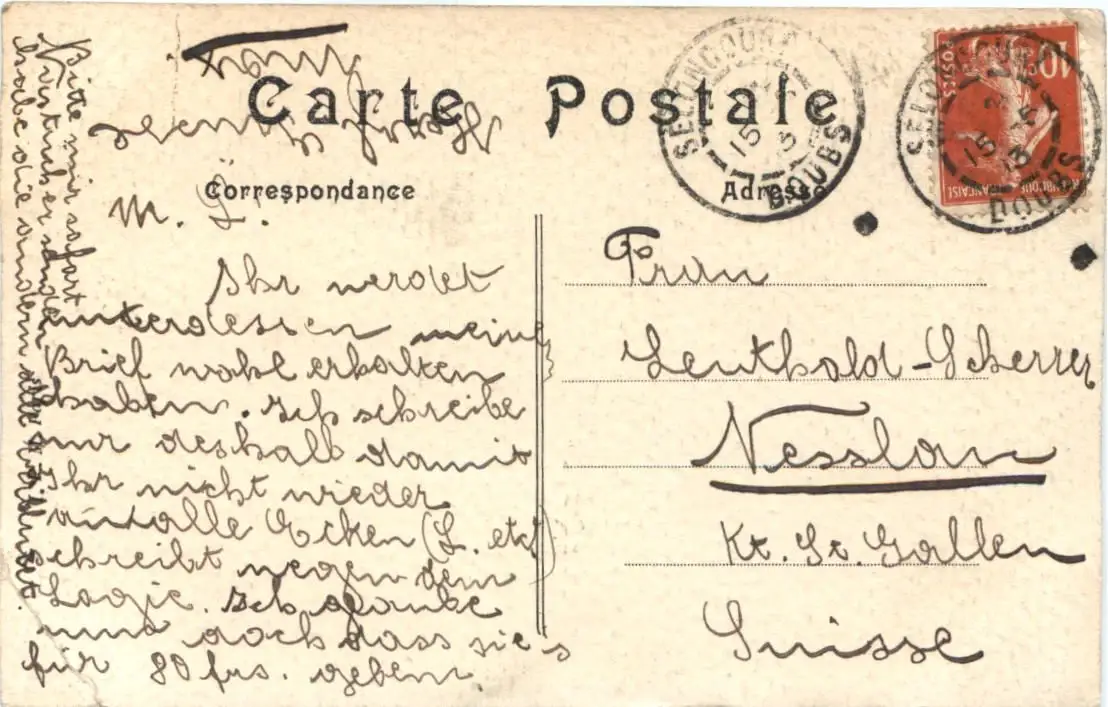 Carte Postale
Correspondance
Adresse
SELONCOURT
15
3
13
DOUBS
SELONCOURT
15
3
13
DOUBS
10
POSTES
REPUBLIQUE FRANÇAISE
M. L.
Ihr werdet
unterdessen meine
Brief wohl erhalten
haben. Ich schreibe
nur deshalb damit
Ihr nicht wieder
an alle Ecken (L. etc)
schreibt wegen dem
Logie. Ich glaube
nun doch dass sie's
für 80 frs. geben
Bitte mir sofort
habe die andern
Frau
Leuthold-Scherrer
Nesslau
Kt. St. Gallen
Suisse